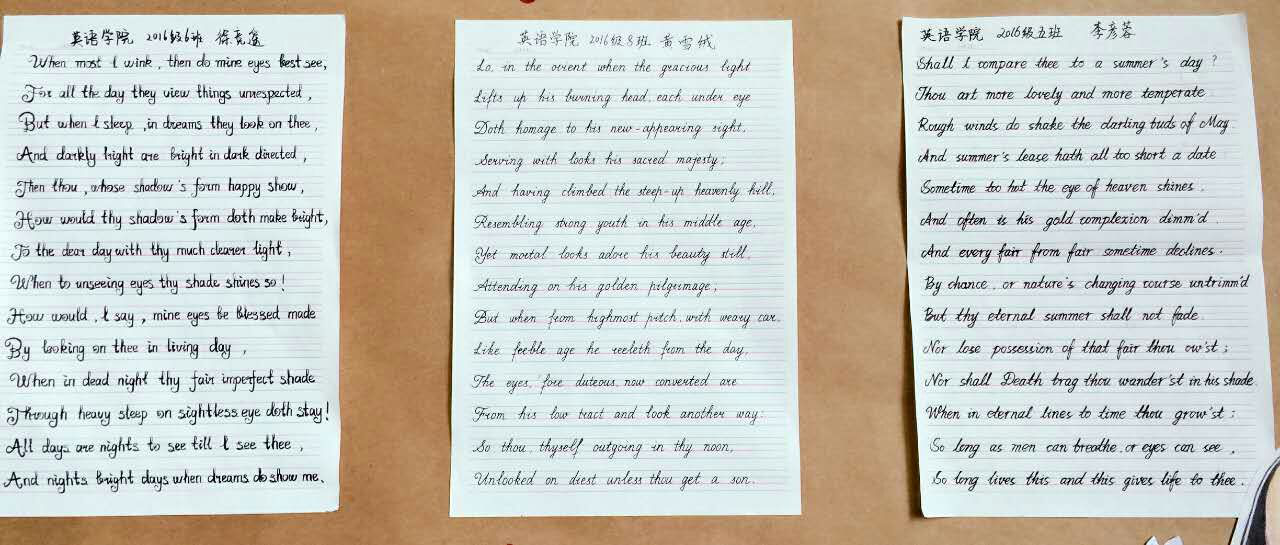 英语学院 2016级6班 徐克遥
When most I wink, then do mine eyes best see,
For all the day they view things unrespected,
But when I sleep, in dreams they look on thee,
And darkly bright are bright in dark directed,
Then thou, whose shadow's form happy show,
How would thy shadow's form doth make bright,
To the dear day with thy much clearer light,
When to unseeing eyes thy shade shines so!
How would, I say, mine eyes be blessed made
By looking on thee in living day,
When in dead night thy fair imperfect shade
Through heavy sleep on sightless eye doth stay!
All days are nights to see till I see thee,
And nights bright days when dreams do show me.
英语学院 2016级8班 黄雪绒
Lo, in the orient when the gracious light
Lifts up his burning head, each under eye
Doth homage to his new-appearing sight,
Serving with looks his sacred majesty;
And having climbed the steep-up heavenly hill,
Resembling strong youth in his middle age,
Yet mortal looks adore his beauty still,
Attending on his golden pilgrimage;
But when from highmost pitch, with weary car,
Like feeble age he reeleth from the day,
The eyes, 'fore duteous, now converted are
From his low tract and look another way:
So thou, thyself outgoing in thy noon,
Unlooked on diest unless thou get a son.
英语学院 2016级五班 李彦蓉
Shall I compare thee to a summer's day?
Thou art more lovely and more temperate.
Rough winds do shake the darling buds of May.
And summer's lease hath all too short a date
Sometime too hot the eye of heaven shines.
And often is his gold complexion dimm'd.
And every fair from fair sometime declines.
By chance, or nature's changing course untrimm'd
But thy eternal summer shall not fade.
Nor lose possession of that fair thou ow'st;
Nor shall Death brag thou wander'st in his shade
When in eternal lines to time thou grow'st;
So long as men can breathe, or eyes can see,
So long lives this and this gives life to thee.